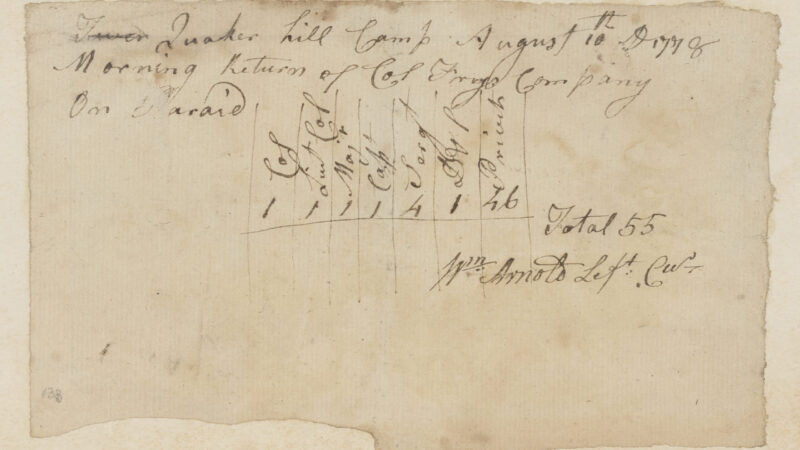 Quaker hill Camp August 10th AD 1778
Morning Return of Col Frys Company
On Paraid
Col Liut Col Majr Capt Sergt Privits
1 1 1 1 4 1 46
Total 55
Wm Arnold Left.
138